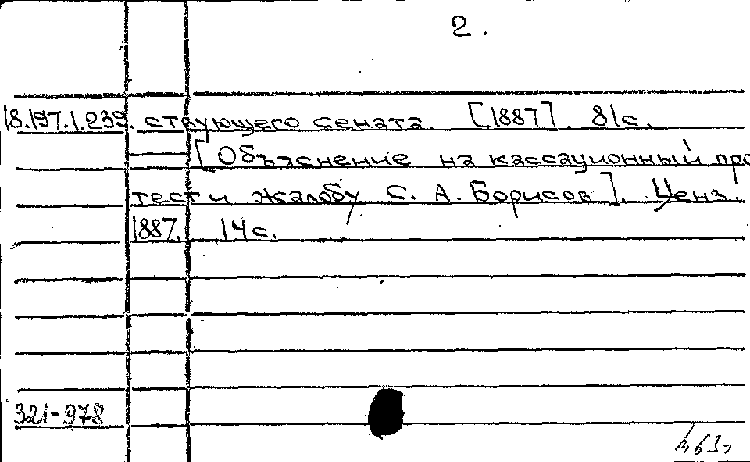 2.
18.197.1.239. ствующего сената. [1887]. 81с.
[Объяснение на кассационный про
тест и жалобу С. А. Борисов]. Ценз.
1887. 14с.
321-978